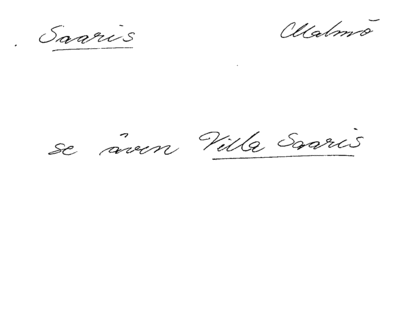 Saaris Malmö
se även Villa Saaris